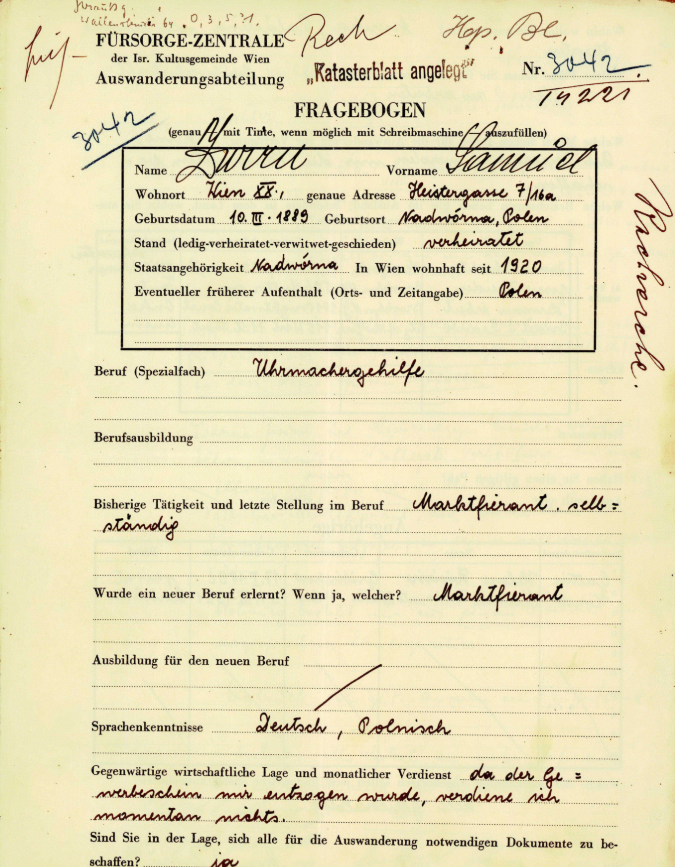 Wallensteinstr 64 0,3,5,31.
Rech Hgs. Bl.
FÜRSORGE-ZENTRALE
der Isr. Kultusgemeinde Wien
Auswanderungsabteilung
„Katasterblatt angelegt"
Nr. 3042
14221
3042
FRAGEBOGEN
(genau mit Tinte, wenn möglich mit Schreibmaschine auszufüllen)
Name Vorname Samuel
Wohnort Wien XX., genaue Adresse Heistergasse 7/16a
Geburtsdatum 10. III. 1889 Geburtsort Nadwórna, Polen
Stand (ledig-verheiratet-verwitwet-geschieden) verheiratet
Staatsangehörigkeit Nadwórna In Wien wohnhaft seit 1920
Eventueller früherer Aufenthalt (Orts- und Zeitangabe) Polen
Beruf (Spezialfach) Uhrmachergehilfe
Berufsausbildung
Bisherige Tätigkeit und letzte Stellung im Beruf Marktfierant . selb=
ständig
Wurde ein neuer Beruf erlernt? Wenn ja, welcher? Marktfierant
Ausbildung für den neuen Beruf
Sprachenkenntnisse Deutsch, Polnisch
Gegenwärtige wirtschaftliche Lage und monatlicher Verdienst da der Ge=
werbeschein mir entzogen wurde, verdiene ich
momentan nichts.
Sind Sie in der Lage, sich alle für die Auswanderung notwendigen Dokumente zu be-
schaffen? ja